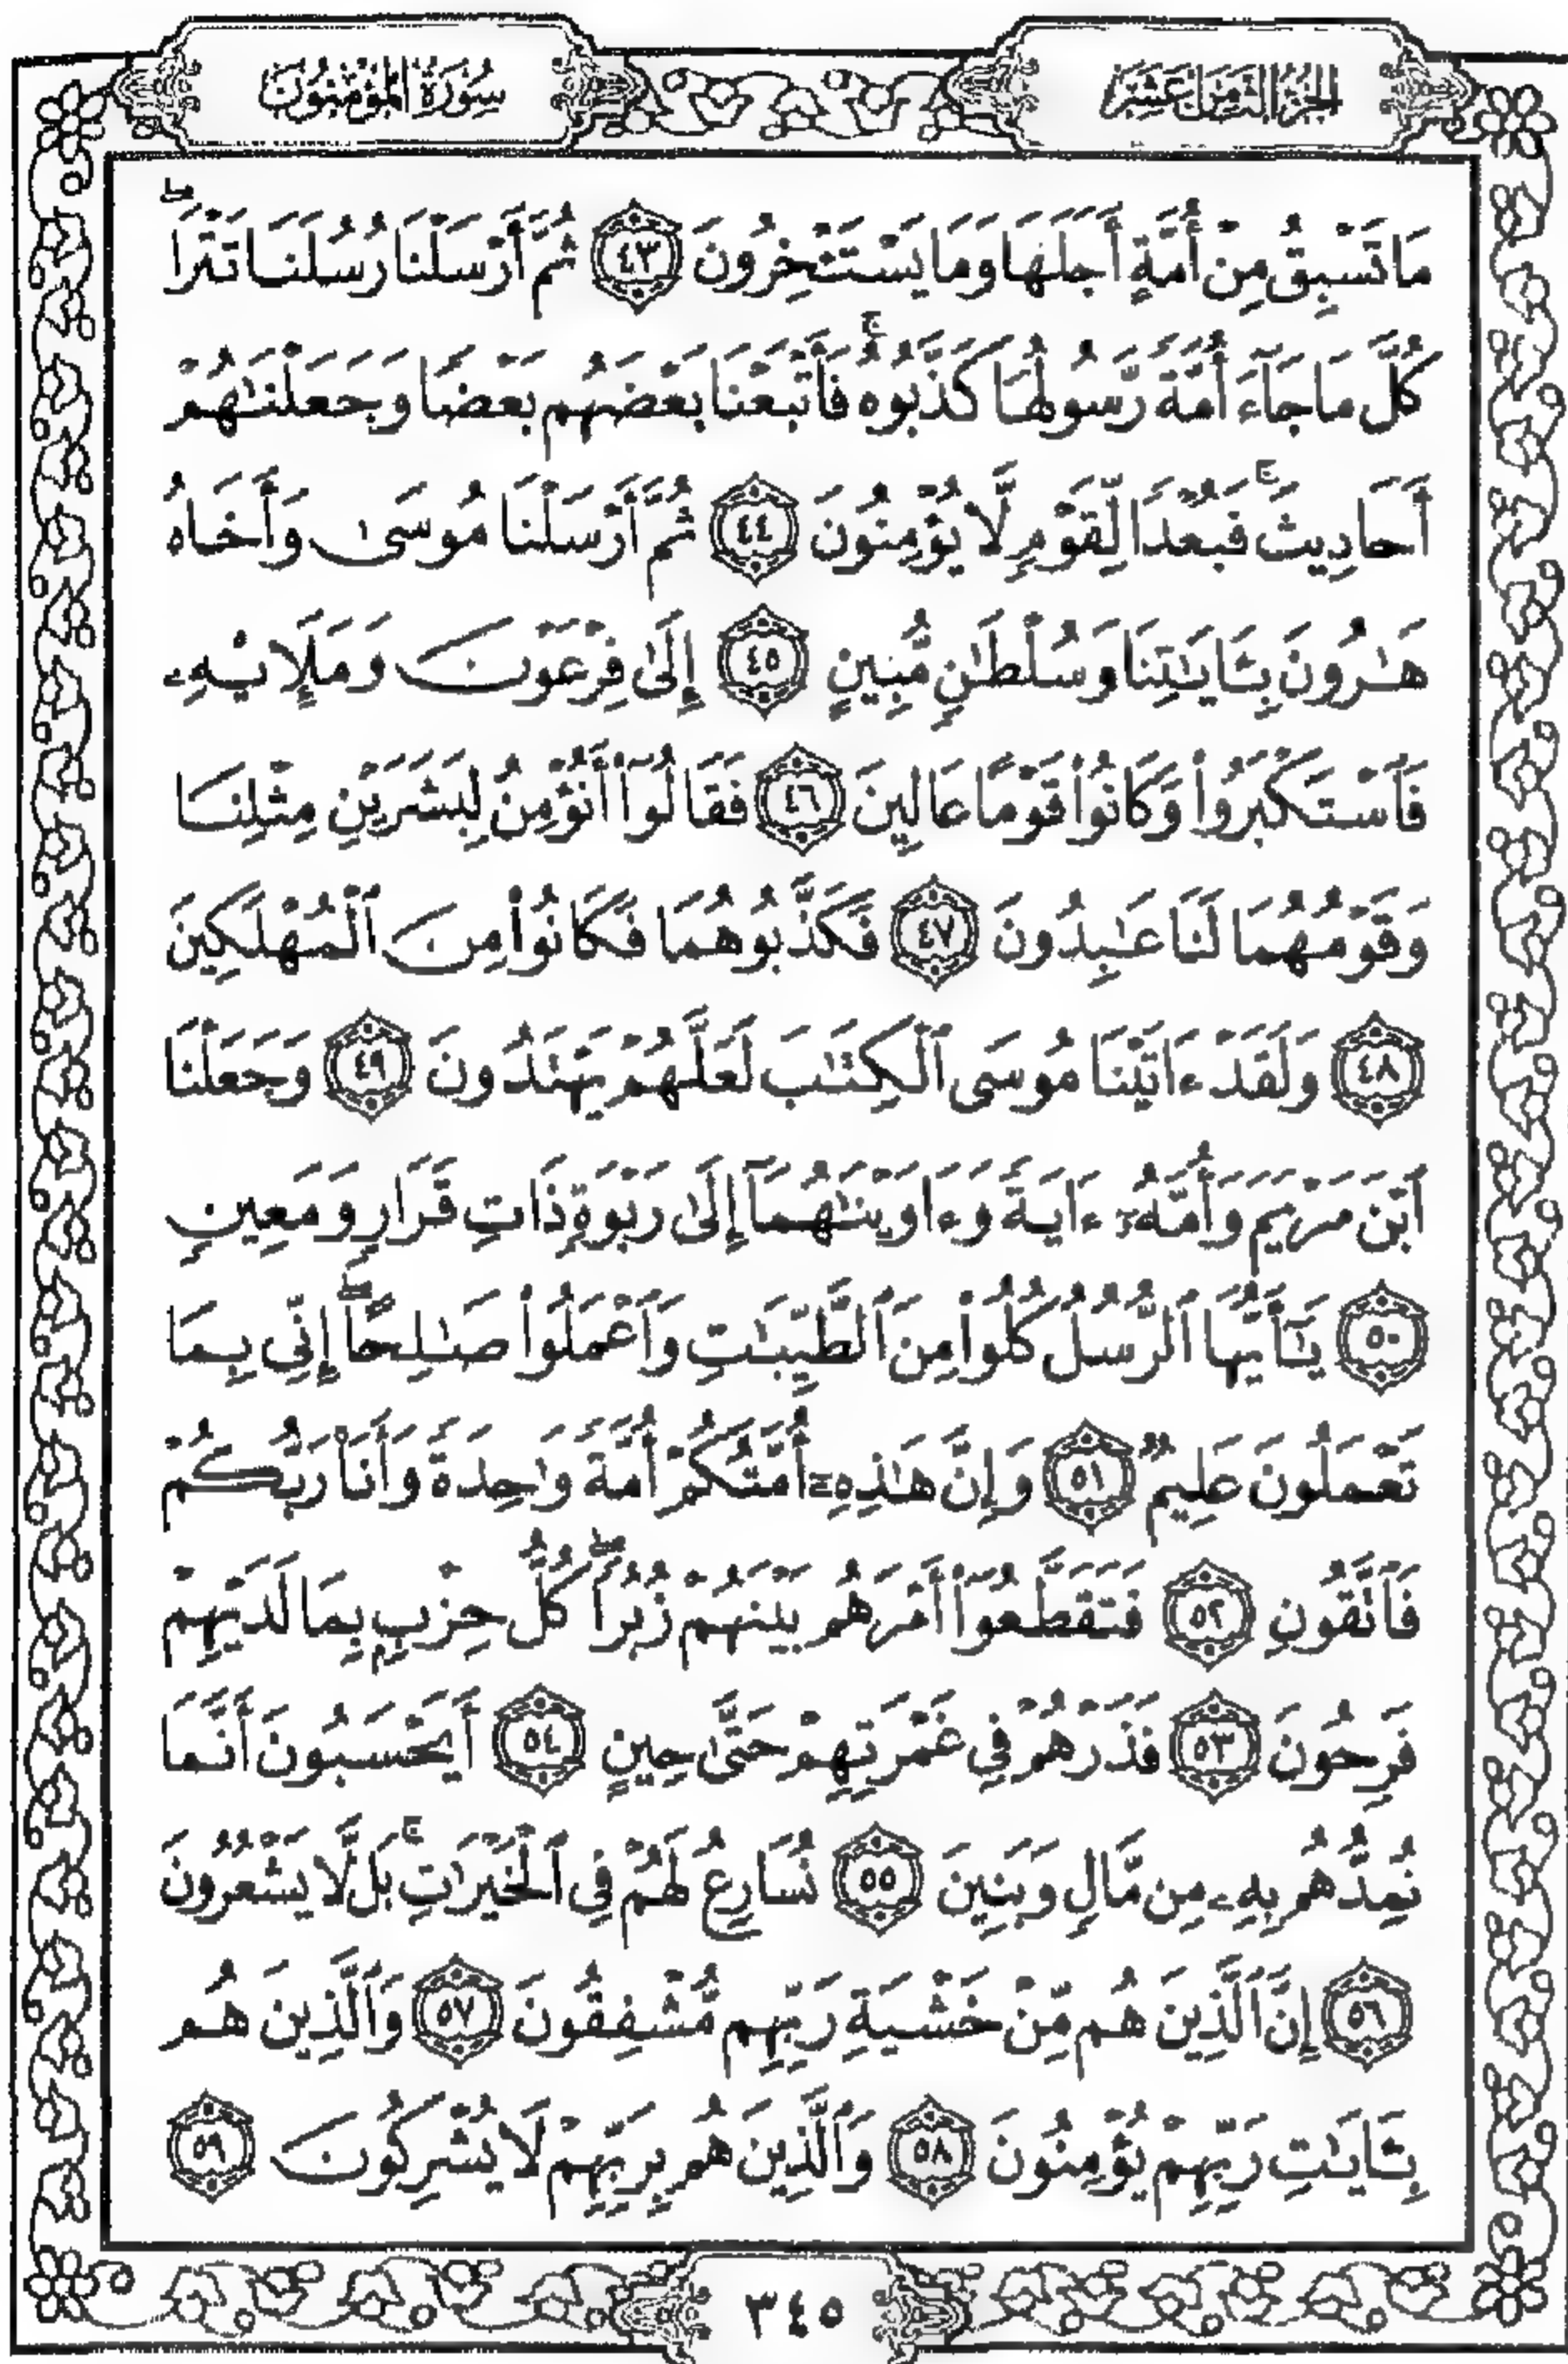 الجزء الثامن عشر
سورة المؤمنون
مَا تَسْبِقُ مِنْ أُمَّةٍ أَجَلَهَا وَمَا يَسْتَـْٔخِرُونَ ٤٣ ثُمَّ أَرْسَلْنَا رُسُلَنَا تَتْرَاۖ
كُلَّ مَا جَآءَ أُمَّةً رَّسُولُهَا كَذَّبُوهُۚ فَأَتْبَعْنَا بَعْضَهُم بَعْضًا وَجَعَلْنَـٰهُمْ
أَحَادِيثَۚ فَبُعْدًا لِّقَوْمٍ لَّا يُؤْمِنُونَ ٤٤ ثُمَّ أَرْسَلْنَا مُوسَىٰ وَأَخَاهُ
هَـٰرُونَ بِـَٔايَـٰتِنَا وَسُلْطَـٰنٍ مُّبِينٍ ٤٥ إِلَىٰ فِرْعَوْنَ وَمَلَإِي۟هِۦ
فَٱسْتَكْبَرُوا۟ وَكَانُوا۟ قَوْمًا عَالِينَ ٤٦ فَقَالُوٓا۟ أَنُؤْمِنُ لِبَشَرَيْنِ مِثْلِنَا
وَقَوْمُهُمَا لَنَا عَـٰبِدُونَ ٤٧ فَكَذَّبُوهُمَا فَكَانُوا۟ مِنَ ٱلْمُهْلَكِينَ
٤٨ وَلَقَدْ ءَاتَيْنَا مُوسَى ٱلْكِتَـٰبَ لَعَلَّهُمْ يَهْتَدُونَ ٤٩ وَجَعَلْنَا
ٱبْنَ مَرْيَمَ وَأُمَّهُۥٓ ءَايَةً وَءَاوَيْنَـٰهُمَآ إِلَىٰ رَبْوَةٍ ذَاتِ قَرَارٍ وَمَعِينٍ
٥٠ يَـٰٓأَيُّهَا ٱلرُّسُلُ كُلُوا۟ مِنَ ٱلطَّيِّبَـٰتِ وَٱعْمَلُوا۟ صَـٰلِحًاۖ إِنِّى بِمَا
تَعْمَلُونَ عَلِيمٌ ٥١ وَإِنَّ هَـٰذِهِۦٓ أُمَّتُكُمْ أُمَّةً وَٰحِدَةً وَأَنَا۠ رَبُّكُمْ
فَٱتَّقُونِ ٥٢ فَتَقَطَّعُوٓا۟ أَمْرَهُم بَيْنَهُمْ زُبُرًاۖ كُلُّ حِزْبٍۭ بِمَا لَدَيْهِمْ
فَرِحُونَ ٥٣ فَذَرْهُمْ فِى غَمْرَتِهِمْ حَتَّىٰ حِينٍ ٥٤ أَيَحْسَبُونَ أَنَّمَا
نُمِدُّهُم بِهِۦ مِن مَّالٍ وَبَنِينَ ٥٥ نُسَارِعُ لَهُمْ فِى ٱلْخَيْرَٰتِۚ بَل لَّا يَشْعُرُونَ
٥٦ إِنَّ ٱلَّذِينَ هُم مِّنْ خَشْيَةِ رَبِّهِم مُّشْفِقُونَ ٥٧ وَٱلَّذِينَ هُم
بِـَٔايَـٰتِ رَبِّهِمْ يُؤْمِنُونَ ٥٨ وَٱلَّذِينَ هُم بِرَبِّهِمْ لَا يُشْرِكُونَ ٥٩
٣٤٥